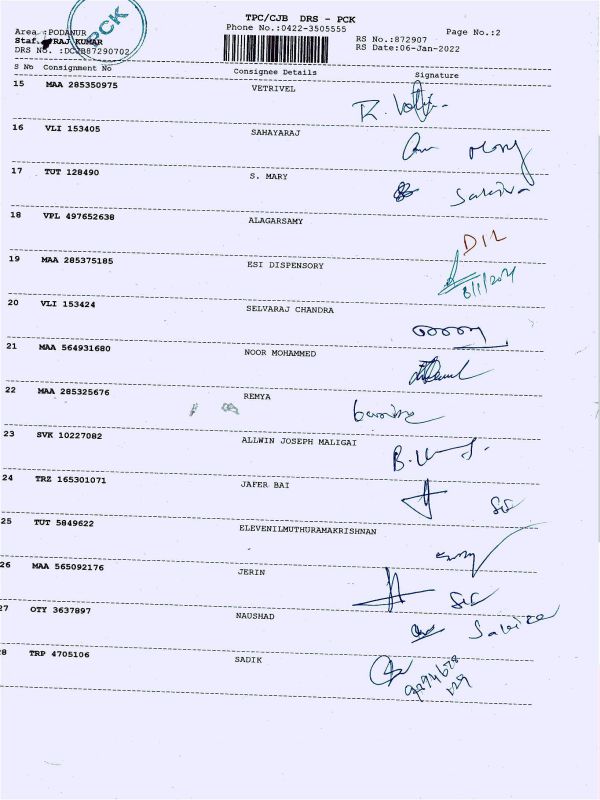 TPC/CJB DRS - PCK
Phone No.:0422-3505555
Page No.:2
PCK
Area :PODANUR
Staf. :RAJ KUMAR
DRS No. :DCJB87290702
RS No.:872907
RS Date:06-Jan-2022
S No Consignment No Consignee Details Signature
15 MAA 285350975 VETRIVEL
16 VLI 153405 SAHAYARAJ
17 TUT 128490 S. MARY
18 VPL 497652638 ALAGARSAMY
DIL
19 MAA 285375185 ESI DISPENSORY
20 VLI 153424 SELVARAJ CHANDRA
21 MAA 564931680 NOOR MOHAMMED
22 MAA 285325676 REMYA
23 SVK 10227082 ALLWIN JOSEPH MALIGAI
24 TRZ 165301071 JAFER BAI
25 TUT 5849622 ELEVENILMUTHURAMAKRISHNAN
26 MAA 565092176 JERIN
27 OTY 3637897 NAUSHAD
28 TRP 4705106 SADIK